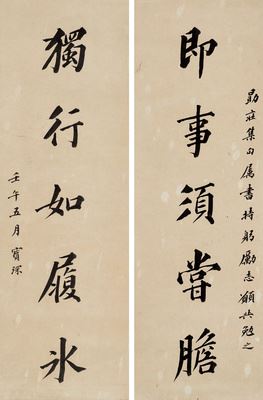 勛莊集句屬書持躬勵志願共勉之
即事須嘗膽
獨行如履冰
壬午五月寶琛